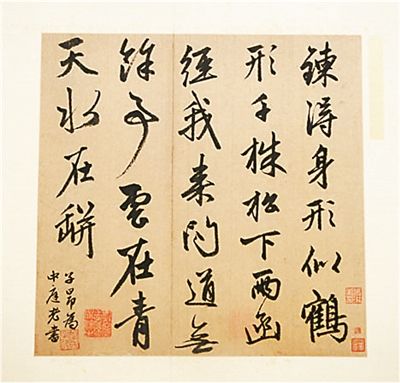 鍊得身形似鶴
形千株松下兩函
經我来问道无
餘事雲在青
天水在缾
子昂為
中庭老書